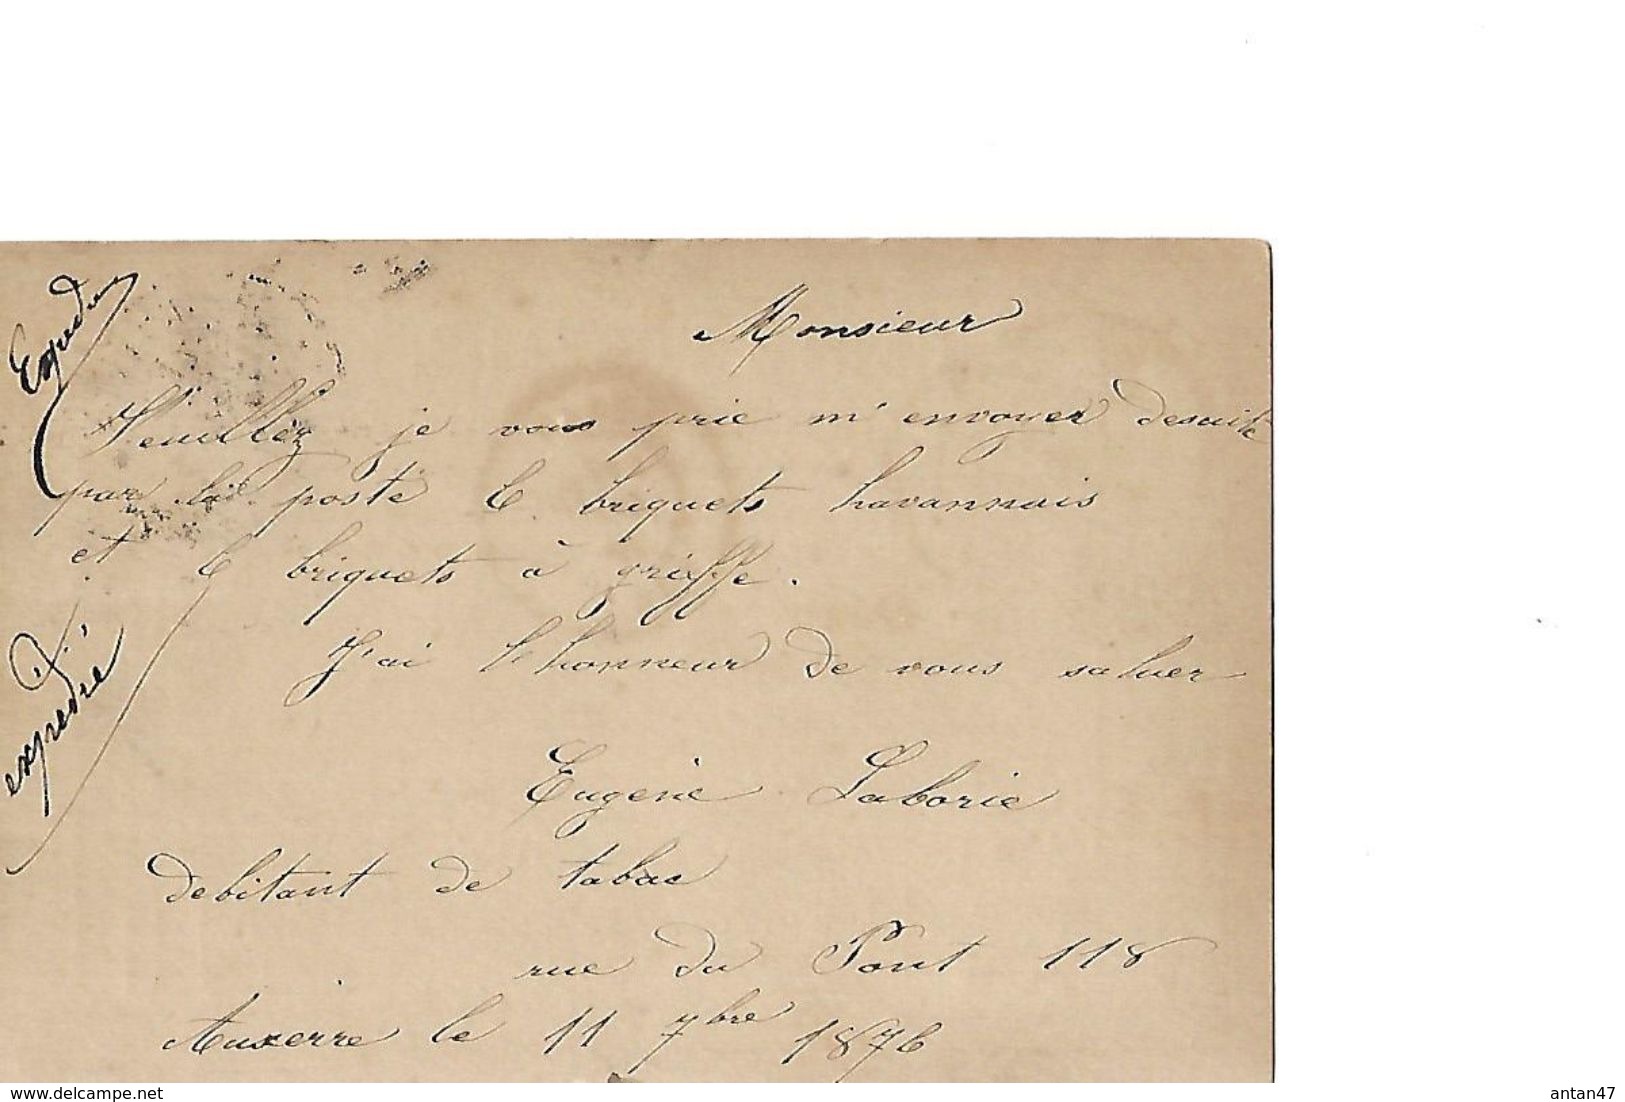 Monsieur
Veuillez je vous prie m'envoyer desuite
par la poste 6 briquets havannais
et 6 briquets à griffe.
J'ai l'honneur de vous saluer
Eugène Laborie
debitant de tabac
rue du Pont 118
Auxerre le 11 7bre 1876
expedié
www.delcampe.net
antan47